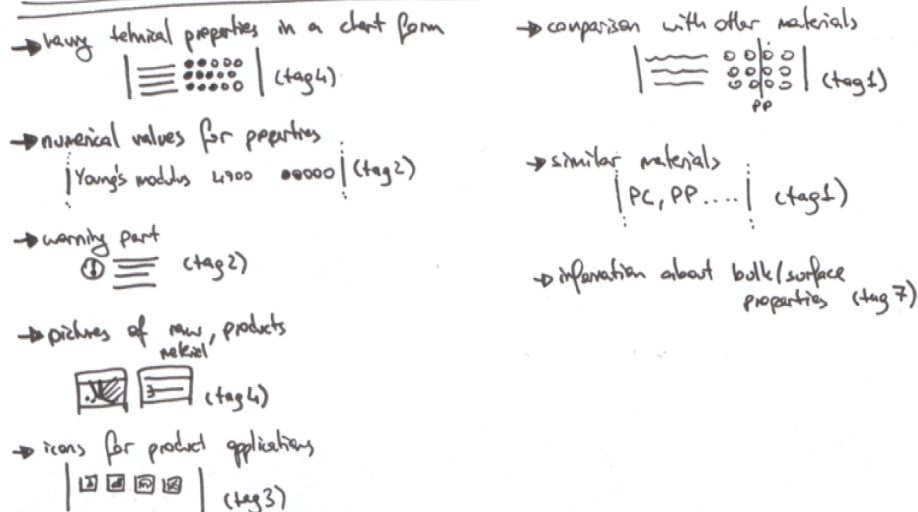 → having tehnical properties in a chart form
(tag4)
→ numerical values for properties
Young's modulus 4900 (tag2)
→ warning part
! (tag2)
→ pictures of raw material, products
(tag4)
→ icons for product applications
(tag3)
→ comparison with other materials
PP (tag1)
→ similar materials
PC, PP .... (tag1)
→ information about bulk/surface
properties (tag 7)